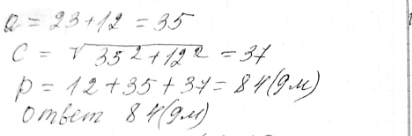 a = 23+12 = 35
c = √35²+12² = 37
p = 12+35+37 = 84(дм)
ответ 84(дм)